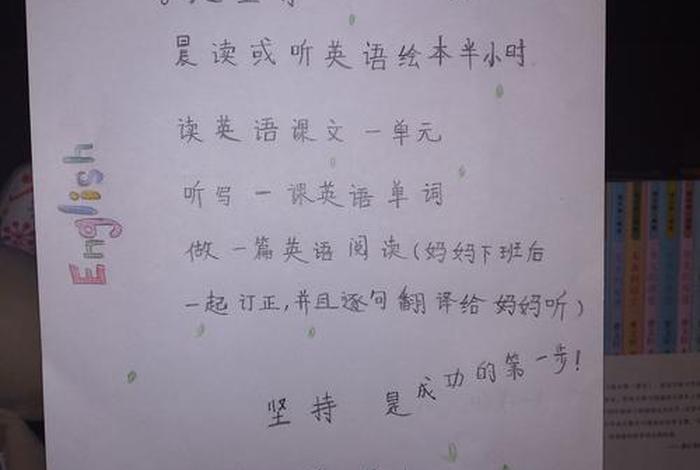 晨读或听英语绘本半小时
读英语课文一单元
听写一课英语单词
做一篇英语阅读(妈妈下班后
一起订正,并且逐句翻译给妈妈听)
坚持 是成功的第一步!
English